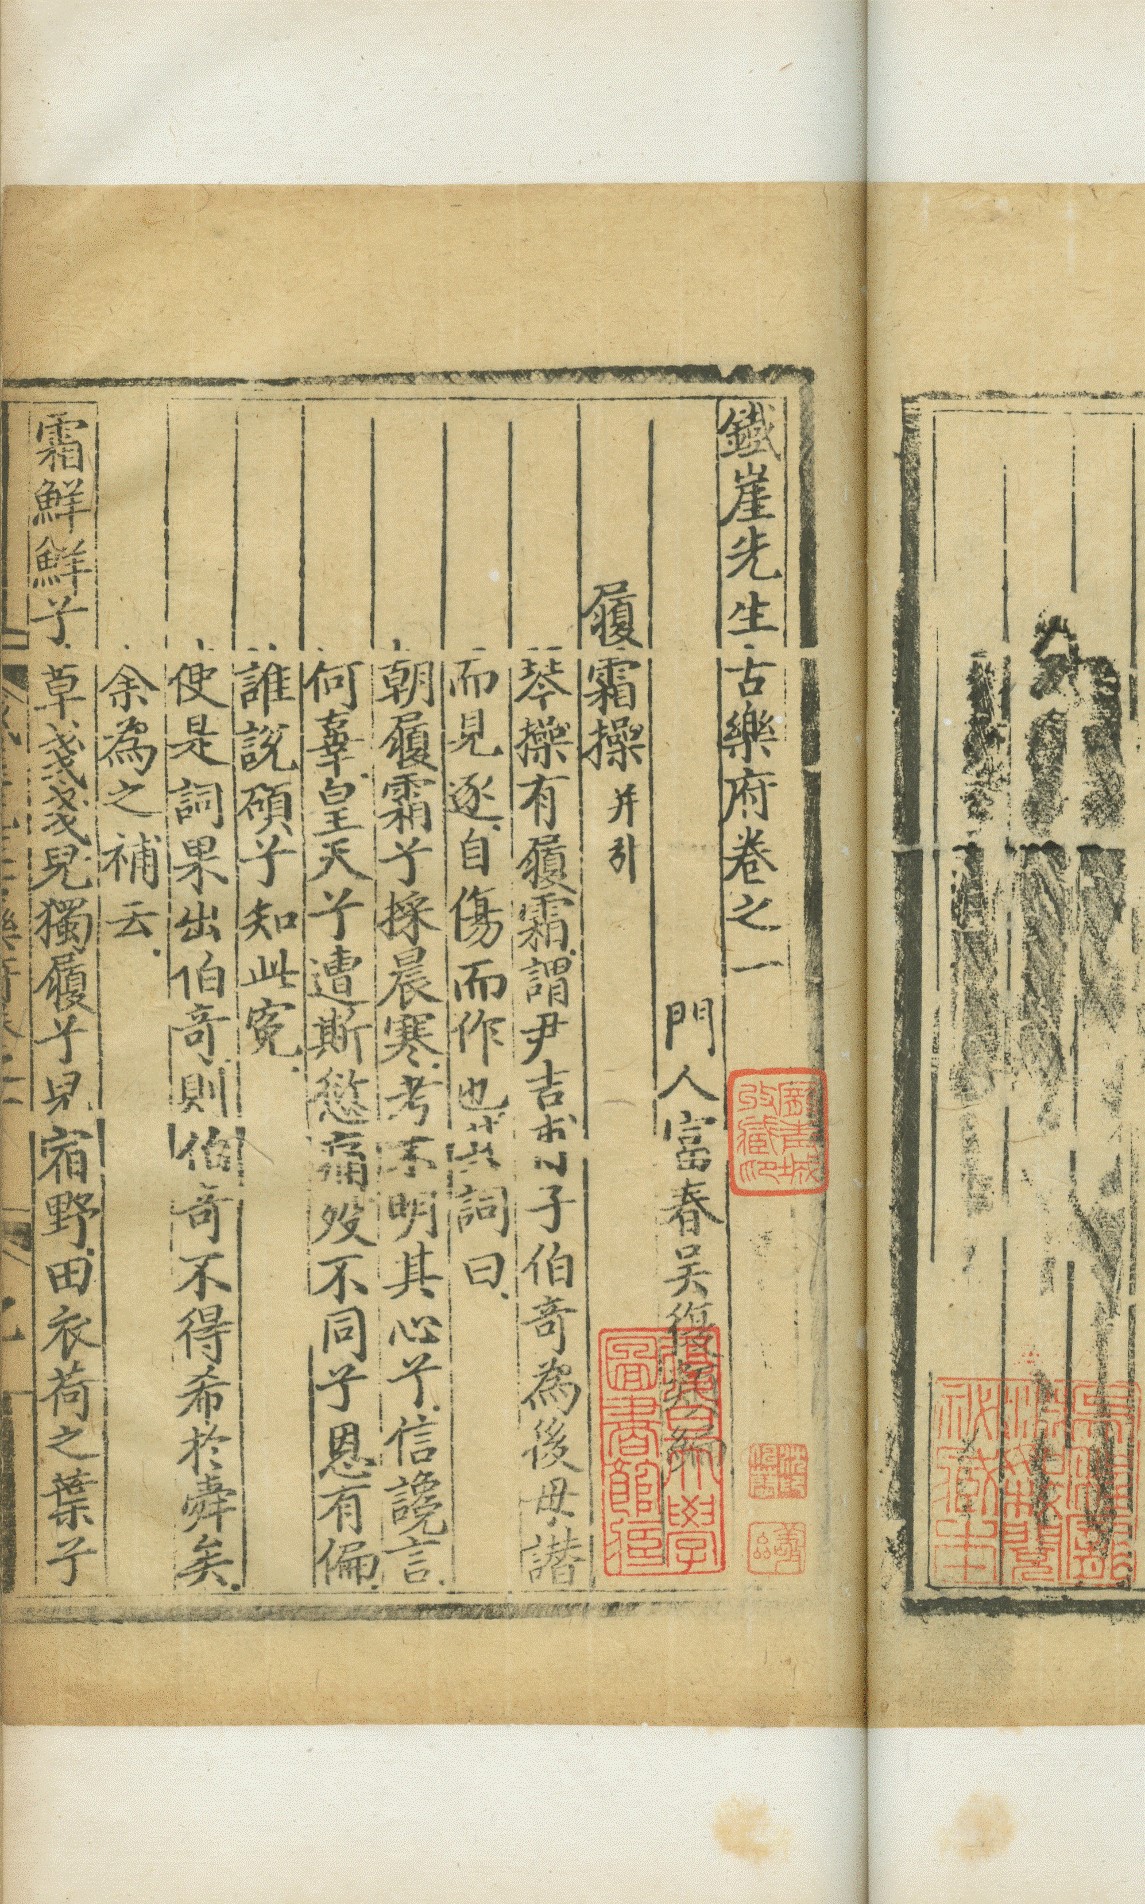 鐵崖先生古樂府卷之一
門人富春吳復類編
履霜操 并引
琴操有履霜謂尹吉甫子伯奇為後母譖
而見逐自傷而作也其詞曰
朝履霜兮採晨寒考不明其心兮信讒言
何辜皇天兮遭斯愆痛歿不同兮恩有偏
誰說碩兮知此寃
使是詞果出伯奇則伯奇不得希於舜矣
余為之補云
霜鮮鮮兮草戔戔兒獨履兮兒宿野田衣荷之葉兮